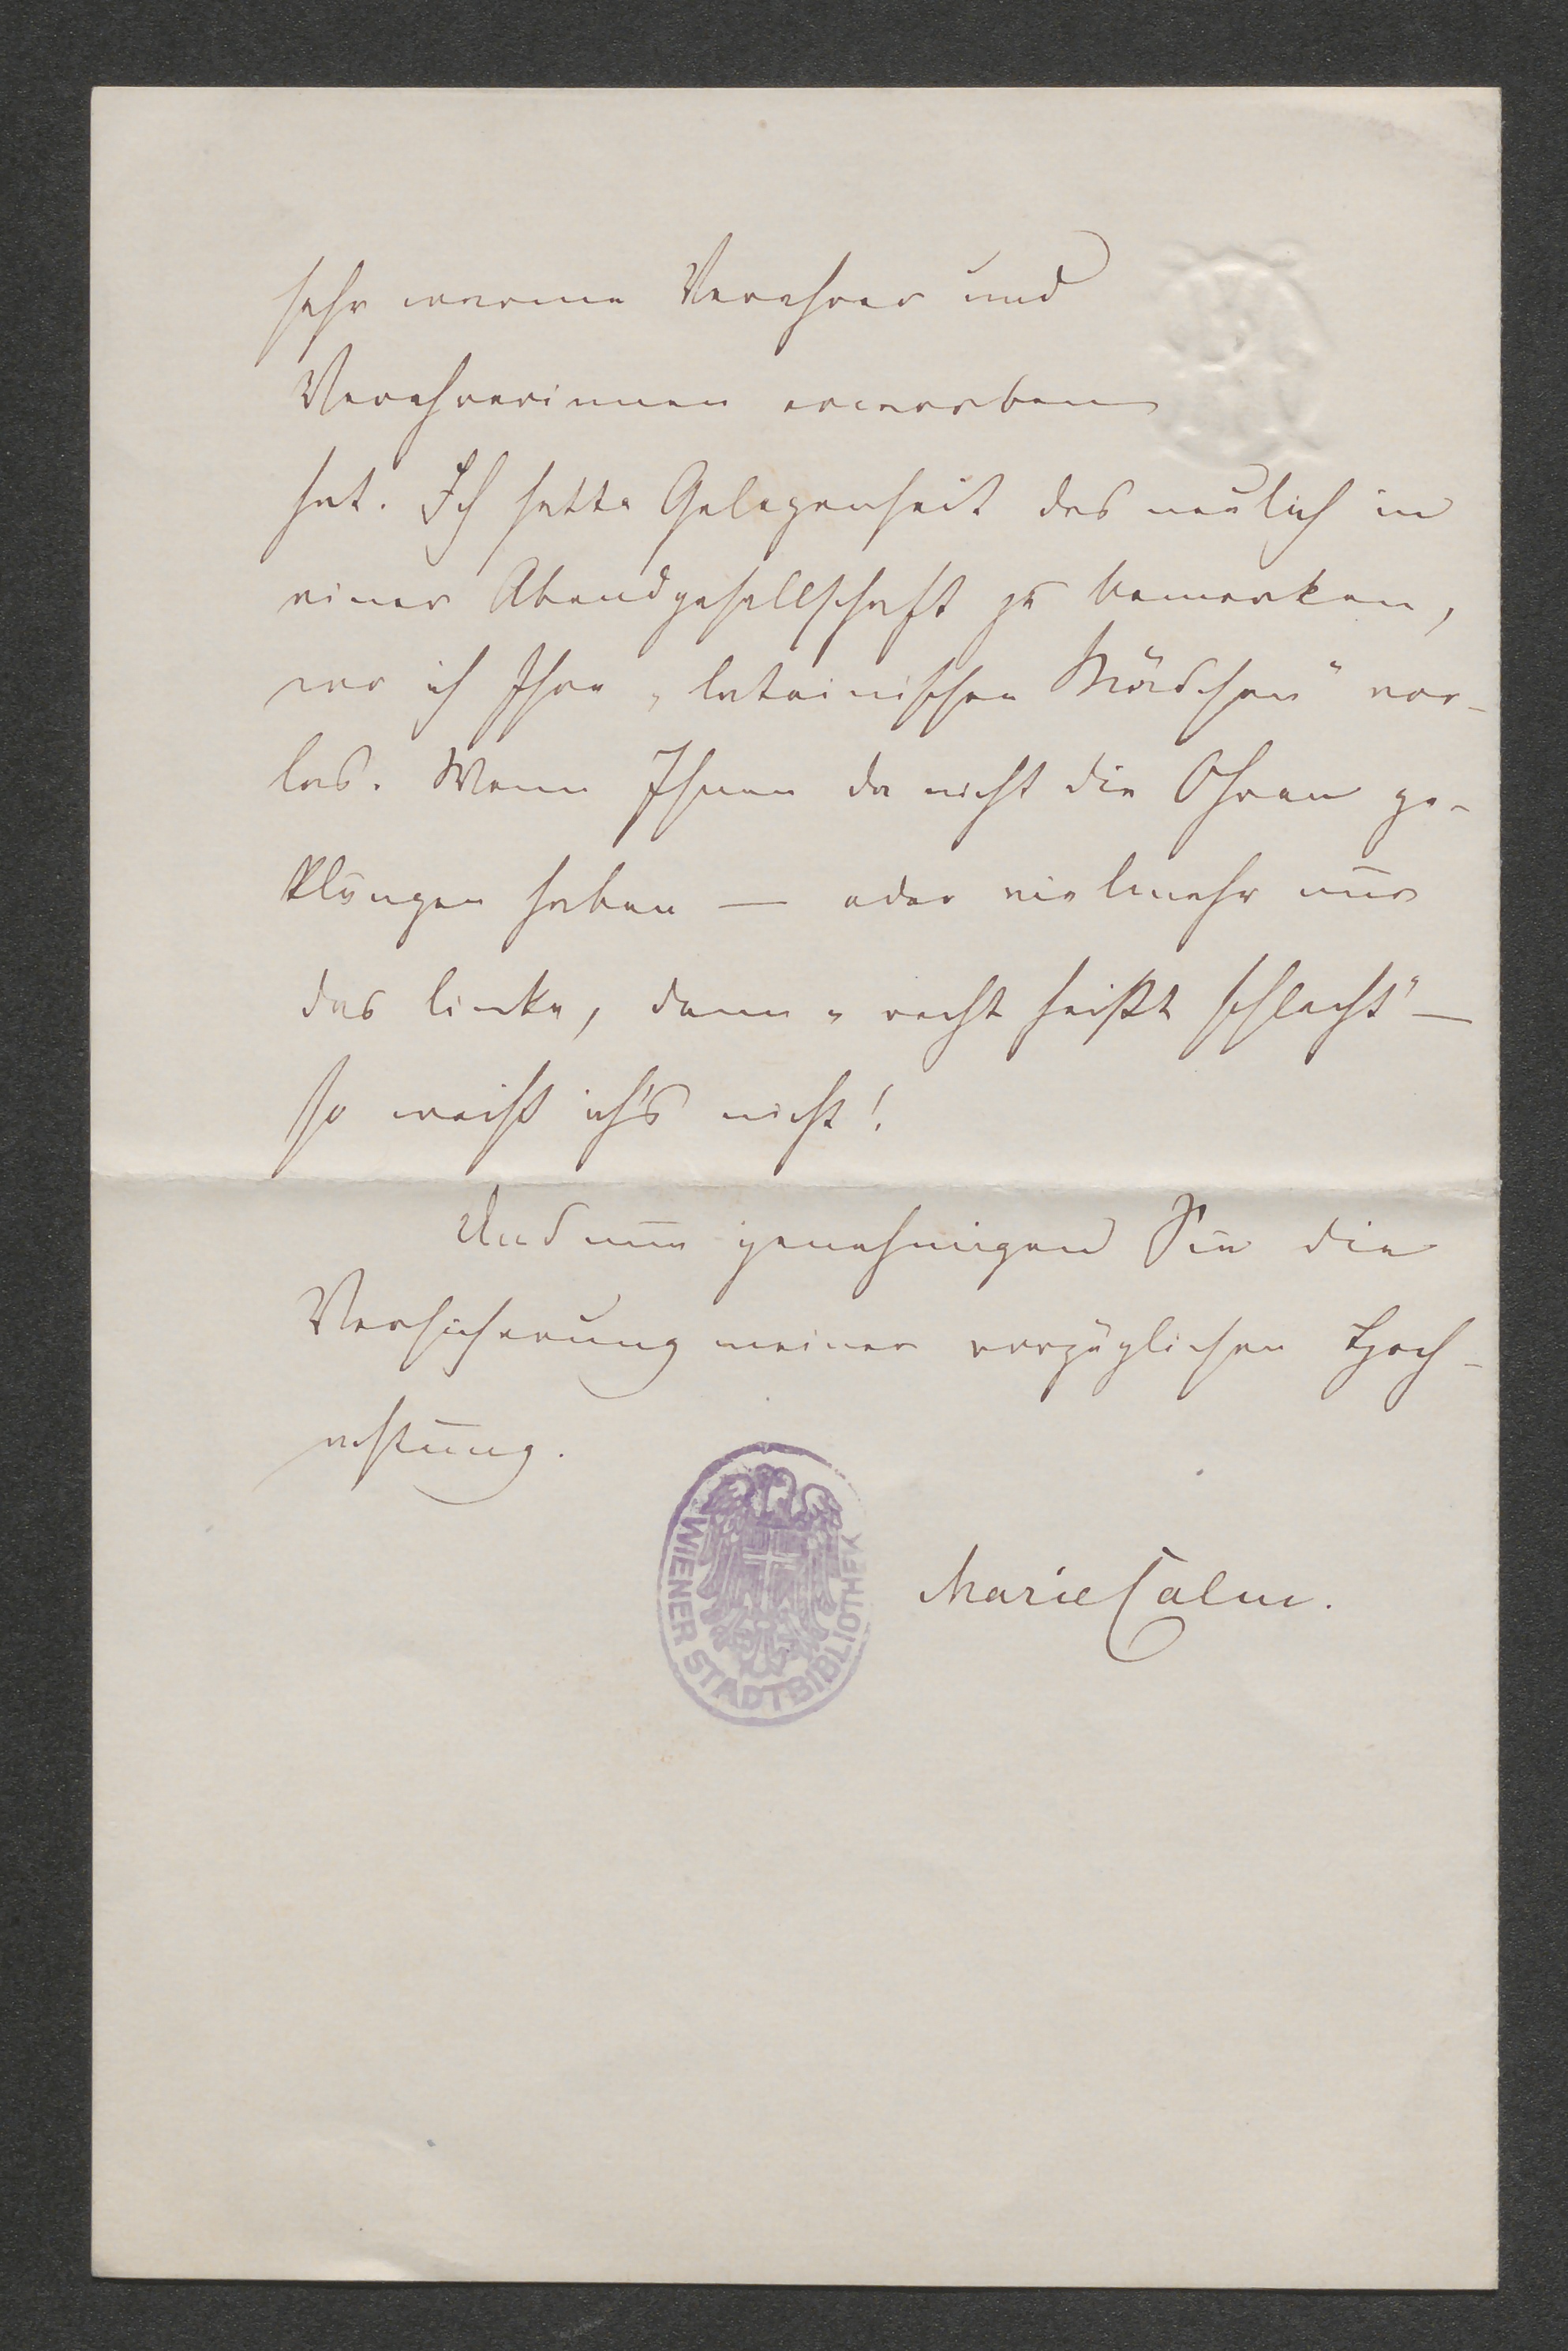 sehr warme Verehrer und
Verehrerinnen erworben
hat. Ich hatte Gelegenheit das neulich in
einer Abendgesellschaft zu bemerken,
wo ich Ihre „lateinischen Mädchen" vor-
las. Wenn Ihnen da nicht die Ohren ge-
klungen haben — oder vielmehr nur
das linke, denn „recht heißt schlecht" —
so weiß ich's nicht!
Und nun genehmigen Sie die
Versicherung meiner vorzüglichen Hoch-
achtung.
Marie Calm.
WIENER STADTBIBLIOTHEK